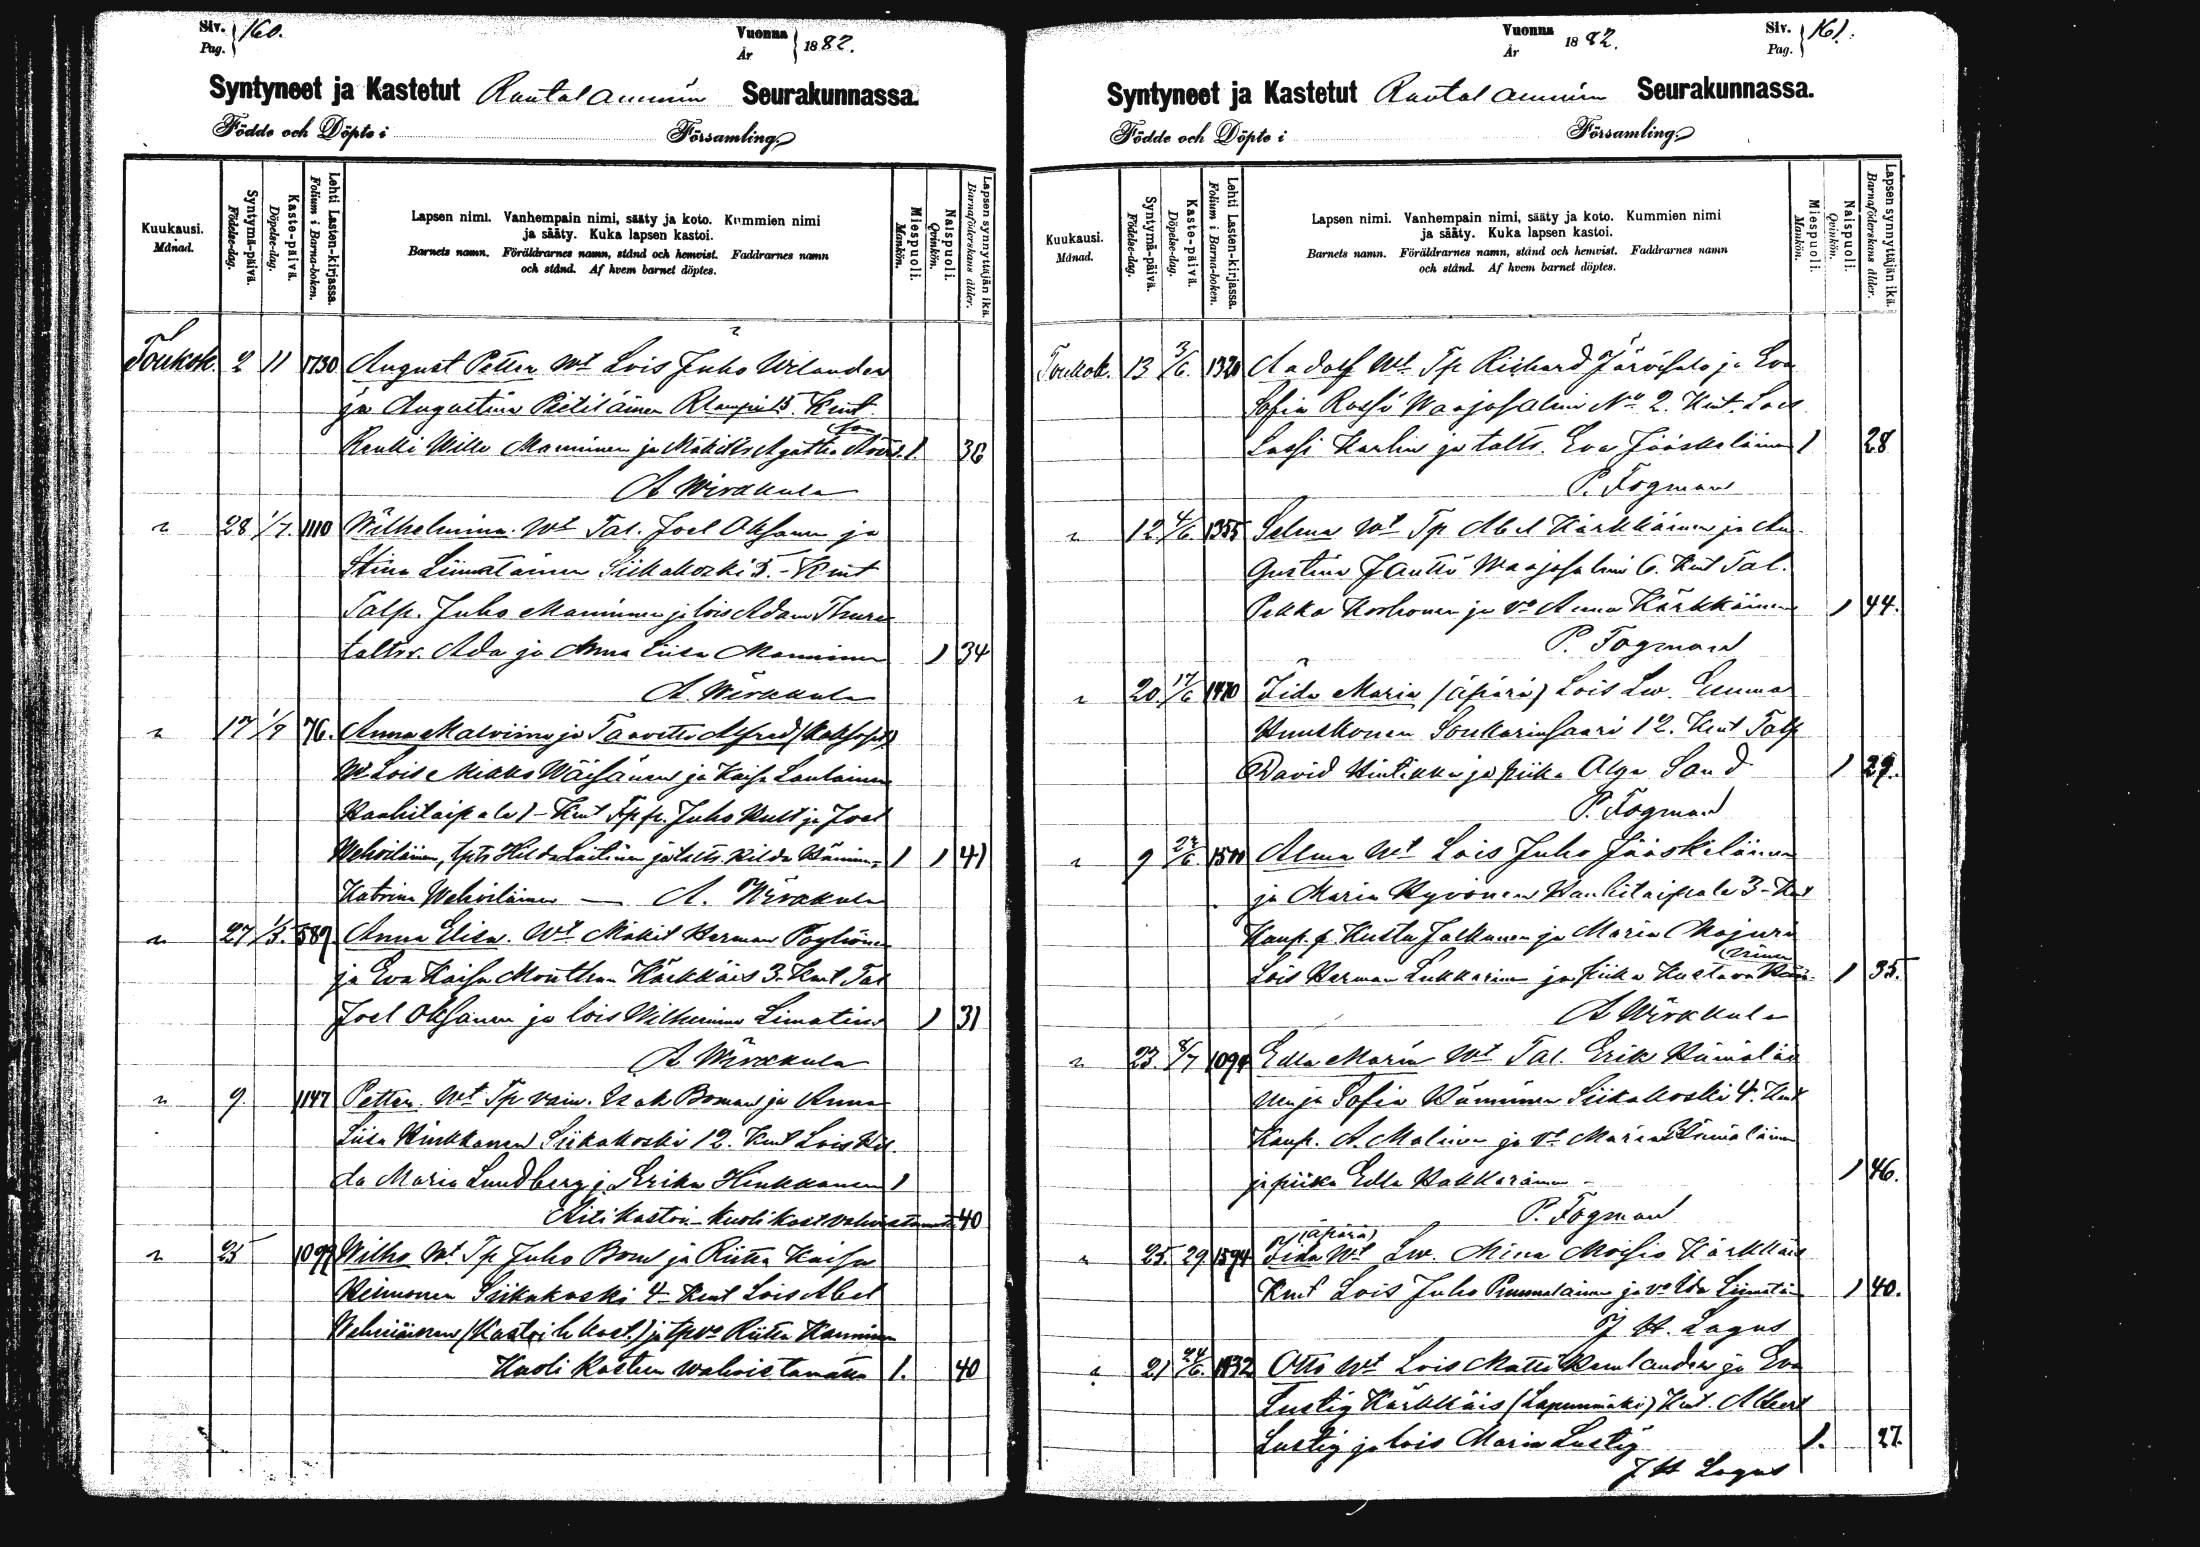 Siv. Pag. 160.
Vuonna År 1882.
Syntyneet ja Kastetut Rautalammin Seurakunnassa.
Födde och Döpte i Församling
Kuukausi. Månad.
Syntymä-päivä. Födelse-dag.
Kaste-päivä. Döpelse-dag.
Lehti Lasten-kirjassa. Folium i Barna-boken.
Lapsen nimi. Vanhempain nimi, sääty ja koto. Kummien nimi
ja sääty. Kuka lapsen kastoi.
Barnets namn. Föräldrarnes namn, stånd och hemvist. Faddrarnes namn
och stånd. Af hvem barnet döptes.
Miespuoli. Mankön.
Naispuoli. Qvinkön.
Lapsen synnyttäjän ikä. Barnaföderskans ålder.
Toukok. 2 11 1730 August Petter Wt Lois Juho Wilander
ja Augustiina Pietiläinen 15. Kmt
Renki Wille Manninen ja Mäkits Agatha 1. 36
A Wirkkula
" 28 1/7. 1110 Wilhelmina. Wt Tal. Joel Oksanen ja
Stina Liimatainen Siikakoski 5. - Kmt
Talp. Juho Manninen ja lois Adam Thure
taltrr. Ada ja Anna Liisa Manninen 1 34
A. Wirkkula
" 17 1/9 76. Anna Malviina ja Taavetti Alfred (kaksoset)
Wt Lois Mikko Wäisänen ja Kaisa Laulainen
Hankitaipale 1 - Kmt Juho Hult ja Joel
Wehviläinen, Hilda Laitinen ja taltt. Hilda 1 1 41
Katrina Wehviläinen — A. Wirkkula
" 27 1/5. 589. Anna Elisa. Wt Mäkit Herman Pöyhönen
ja Eva Kaisa Mouthan Kärkkäis 3. Kmt Tal
Joel Oksanen ja lois Wilhelmina Limatius 1 31
A Wirkkula
" 9. 1147 Petter. Wt Tp vain. Isak Boman ja Anna
Liisa Hinkkanen Siikakoski 12. Kmt Lois Hil
da Maria Lundberg ja Erika Hinkkanen 1
Äiti kastoi - kuoli kast vahvistamatta 40
" 25 1099 Wilho Wt Tp Juho Bom ja Riitta Kaisa
Heimonen Siikakoski 4 - Kmt Lois Abel
Wehviläinen (Kastoi h. kast.) ja Riitta Hänninen
Kuoli kasteen wahvistamatta 1. 40
Vuonna År 1882.
Siv. Pag. 161.
Syntyneet ja Kastetut Rautalammin Seurakunnassa.
Födde och Döpte i Församling
Kuukausi. Månad.
Syntymä-päivä. Födelse-dag.
Kaste-päivä. Döpelse-dag.
Lehti Lasten-kirjassa. Folium i Barna-boken.
Lapsen nimi. Vanhempain nimi, sääty ja koto. Kummien nimi
ja sääty. Kuka lapsen kastoi.
Barnets namn. Föräldrarnes namn, stånd och hemvist. Faddrarnes namn
och stånd. Af hvem barnet döptes.
Miespuoli. Mankön.
Naispuoli. Qvinkön.
Lapsen synnyttäjän ikä. Barnaföderskans ålder.
Toukok. 13 3/6. 1320 Aadolf Wt. Tp Richard Järvisalo ja Eva
Sofia Rossi Waajasalmi No 2. Kmt. Lois
Lassi Karlin ja taltt. Eva Jääskeläinen 1 28
P. Fogman
" 12 4/6. 1355 Selma Wt Tp Abel Kärkkäinen ja Au-
gustina Jäntti Waajasalmi 6. Kmt Tal.
Pekka Korhonen ja vo Anna Kärkkäinen 1 44.
P. Fogman
" 20. 17/6 1470 Iida Maria (äpärä) Lois Lw. Emma
Huuskonen Soukarinsaari 12. Kmt Talp
David Hintikka ja piika Alga Sand 1 29.
P. Fogman
" 9 24/6. 1500 Alma Wt Lois Juho Jääskeläinen
ja Maria Hyvönen Hankitaipale 3 - Kmt
Kaup. p. Kusta Jalkanen ja Maria Majuri
Lois Herman Lukkarinen ja piika Kustava Hänninen 1 35.
A Wirkkula
" 23. 8/7 1094 Edla Maria Wt Tal. Erik Hämäläi
nen ja Sofia Hänninen Siikakoski 4. Kmt
Kaup. A. Malinen ja vo Maria Hämäläinen
ja piika Edla Hakkarainen - 1 46.
P. Fogman
(äpärä)
" 25. 29. 1594 Iida Wt Lw. Mina Moisio Kärkkäis
Kmt Lois Juho Pummalainen ja vo Ida Liimatain 1 40.
J H. Lagus
" 21 24/6. 1432 Otto Wt Lois Matti Remlander ja Eva
Lustig Kärkkäis (Lapunmäki) Kmt. Albert
Lustig ja lois Maria Lustig 1. 27.
J H Lagus